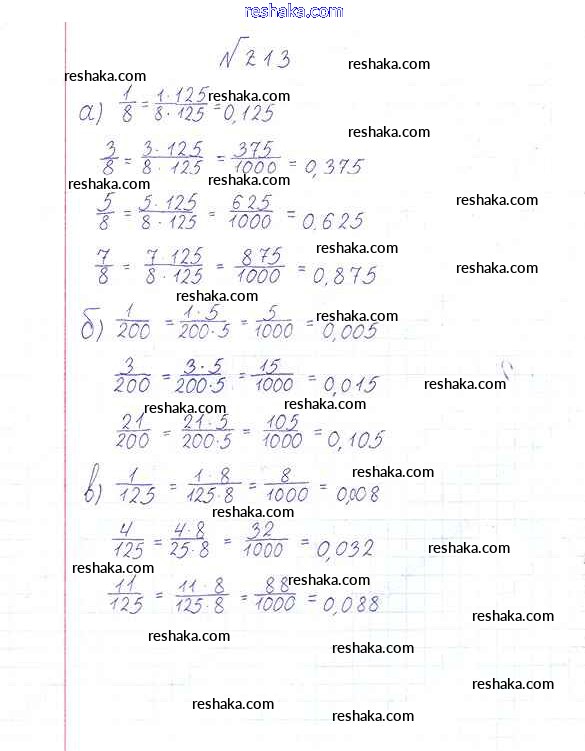 reshaka.com
№213
reshaka.com
reshaka.com
а) 1/8 = 1·125/8·125 = 0,125
reshaka.com
reshaka.com
3/8 = 3·125/8·125 = 375/1000 = 0,375
reshaka.com
reshaka.com
reshaka.com
5/8 = 5·125/8·125 = 625/1000 = 0.625
reshaka.com
7/8 = 7·125/8·125 = 875/1000 = 0,875
reshaka.com
reshaka.com
б) 1/200 = 1·5/200·5 = 5/1000 = 0,005
reshaka.com
3/200 = 3·5/200·5 = 15/1000 = 0,015
reshaka.com
reshaka.com
reshaka.com
21/200 = 21·5/200·5 = 105/1000 = 0,105
reshaka.com
в) 1/125 = 1·8/125·8 = 8/1000 = 0,008
reshaka.com
4/125 = 4·8/25·8 = 32/1000 = 0,032
reshaka.com
reshaka.com
reshaka.com
11/125 = 11·8/125·8 = 88/1000 = 0,088
reshaka.com
reshaka.com
reshaka.com
reshaka.com
reshaka.com
reshaka.com
reshaka.com